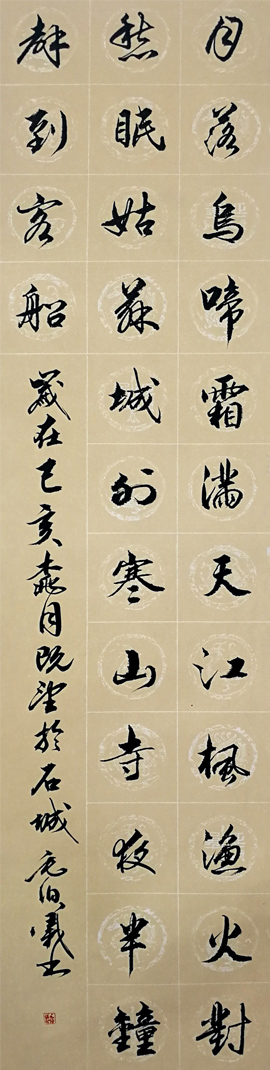 月落烏啼霜滿天江楓漁火對
愁眠姑蘇城外寒山寺夜半鐘
聲到客船
歲在己亥桃月既望於石城